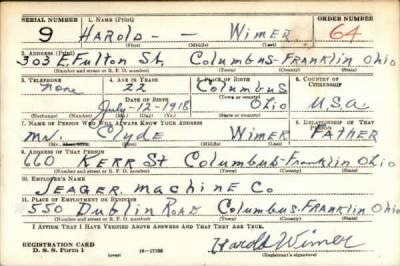 SERIAL NUMBER 1. NAME (Print) ORDER NUMBER
9 HAROLD - - Wimer 64
(First) (Middle) (Last)
2. ADDRESS (Print)
303 E. Fulton St, Columbus-Franklin Ohio
(Number and street or R. F. D. number) (Town) (County) (State)
3. TELEPHONE 4. AGE IN YEARS 5. PLACE OF BIRTH 6. COUNTRY OF CITIZENSHIP
none 22 Columbus
DATE OF BIRTH (Town or county)
July-12-1918 Ohio U.S.a.
(Exchange) (No.) (Mo.) (Day) (Yr.) (State or country)
7. NAME OF PERSON WHO WILL ALWAYS KNOW YOUR ADDRESS 8. RELATIONSHIP OF THAT PERSON
Mr. Clyde Wimer FATHER
(Mr., Mrs., Miss) (First) (Middle) (Last)
9. ADDRESS OF THAT PERSON
660 KERR St Columbus-Franklin Ohio
(Number and street or R. F. D. number) (Town) (County) (State)
10. EMPLOYER'S NAME
JEAGER machine Co
11. PLACE OF EMPLOYMENT OR BUSINESS
550 Dublin ROAD Columbus-Franklin Ohio
(Number and street or R. F. D. number) (Town) (County) (State)
I AFFIRM THAT I HAVE VERIFIED ABOVE ANSWERS AND THAT THEY ARE TRUE.
REGISTRATION CARD
D. S. S. Form 1 16-17105 Harold Wimer
(over) (Registrant's signature)